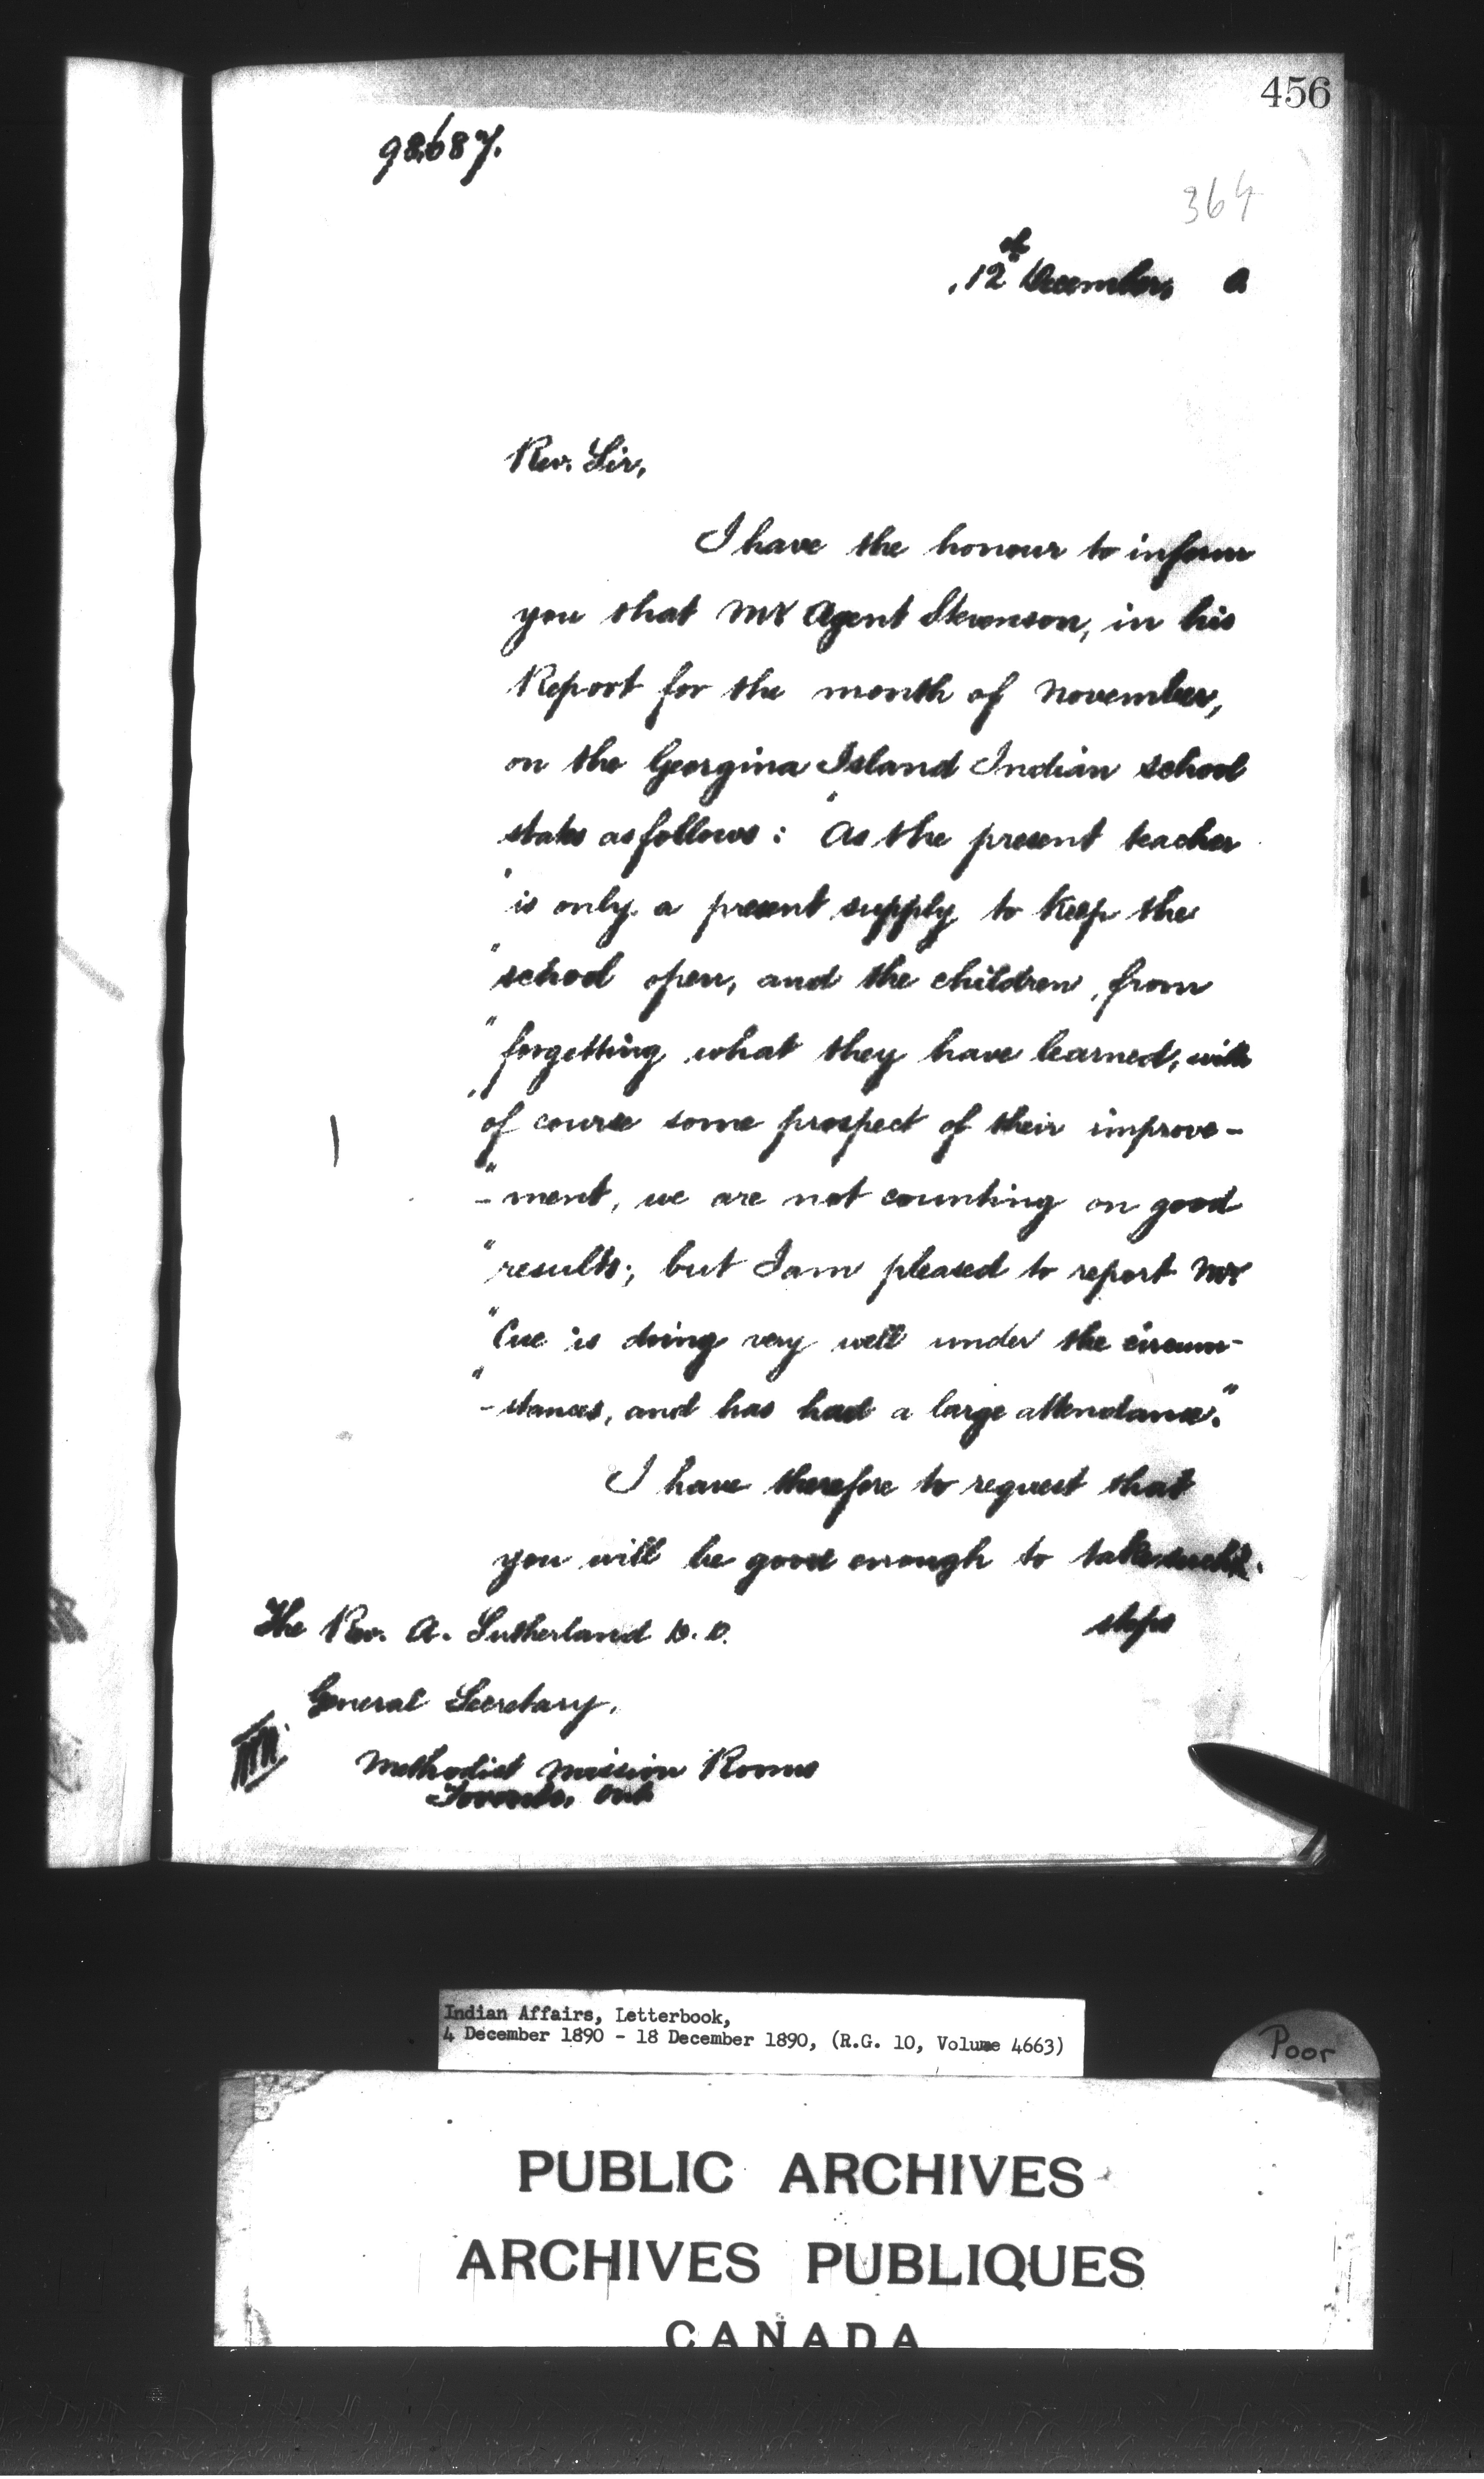 456
98687.
364
12th December, 0
Rev. Sir,
I have the honour to inform
you that Mr Agent Stevenson, in his
Report for the month of November,
on the Georgina Island Indian school
states as follows: "As the present teacher
"is only a present supply to keep the
"school open, and the children, from
"forgetting what they have learned, with
"of course some prospect of their improve-
"-ment, we are not counting on good
"results; but I am pleased to report Mr
"Cue is doing very well under the circum-
"-stances, and has had a large attendance."
I have therefore to request that
you will be good enough to take such
steps
The Rev. A. Sutherland D.D.
General Secretary,
Methodist Mission Rooms
Toronto, Ont
Indian Affairs, Letterbook,
4 December 1890 - 18 December 1890, (R.G. 10, Volume 4663)
Poor
PUBLIC ARCHIVES
ARCHIVES PUBLIQUES
CANADA